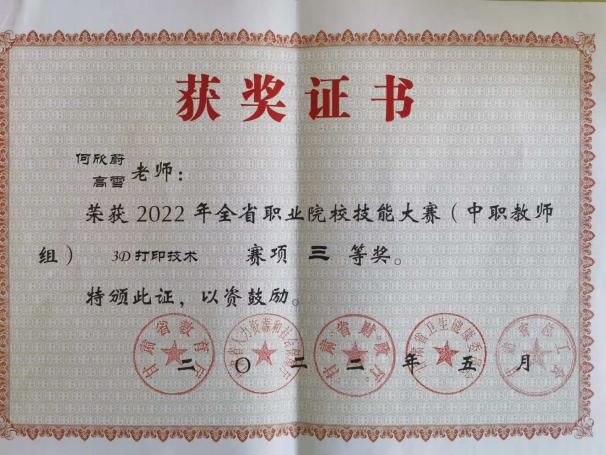 获奖证书
何欣蔚
高雪
老师：
荣获2022年全省职业院校技能大赛（中职教师
组） 3D打印技术 赛项 三 等奖。
特颁此证，以资鼓励。
甘肃省教育厅
甘肃省财政厅
甘肃省卫生健康委员会
二〇二二年五月